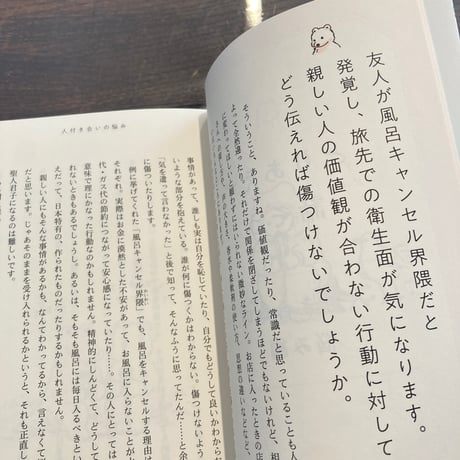 友人が風呂キャンセル界隈だと
発覚し、旅先での衛生面が気になります。
親しい人の価値観が合わない行動に対して
どう伝えれば傷つけないでしょうか。
そういうこと、ありますね。価値観だったり、常識だと思っていることも人
よって全然違ったり。それだけで関係を閉ざしてしまうほどでもないけれど、相
に変わってほしいと願わずにはいられない微妙なライン。お店に入ったときの店
思想の違いなどなど、
人付き合いの悩み
事情があって、誰しも実は自分を恥じていたり、自分でもどうして良いかわからな
いような部分を抱えている。誰が何に傷つくかはわからない。傷つけないよう
「気を遣って言わなかった」と後で知って、そんなふうに思ってたんだ……と余
に傷ついたりします。
例に挙げてくれた「風呂キャンセル界隈」でも、風呂をキャンセルする理由は
それぞれ。実際はお金に漠然とした不安があって、お風呂に入らないことが
代・ガス代の節約につながって安心感になっていたり……。その人にとっては
意味で理にかなった行動なのかもしれません。精神的にしんどくて、どうして
れないときもあるでしょうし、あるいは、そもそも風呂には毎日入るべきという
えだって、日本特有の、作られたものだったりするかもしれません。
親しい人にもそんな事情があるかも、なんてわかってるから、言えなくて
だと思います。じゃあそのままを受け入れられるかというと、それも正直し
聖人君子になるのは難しいです。